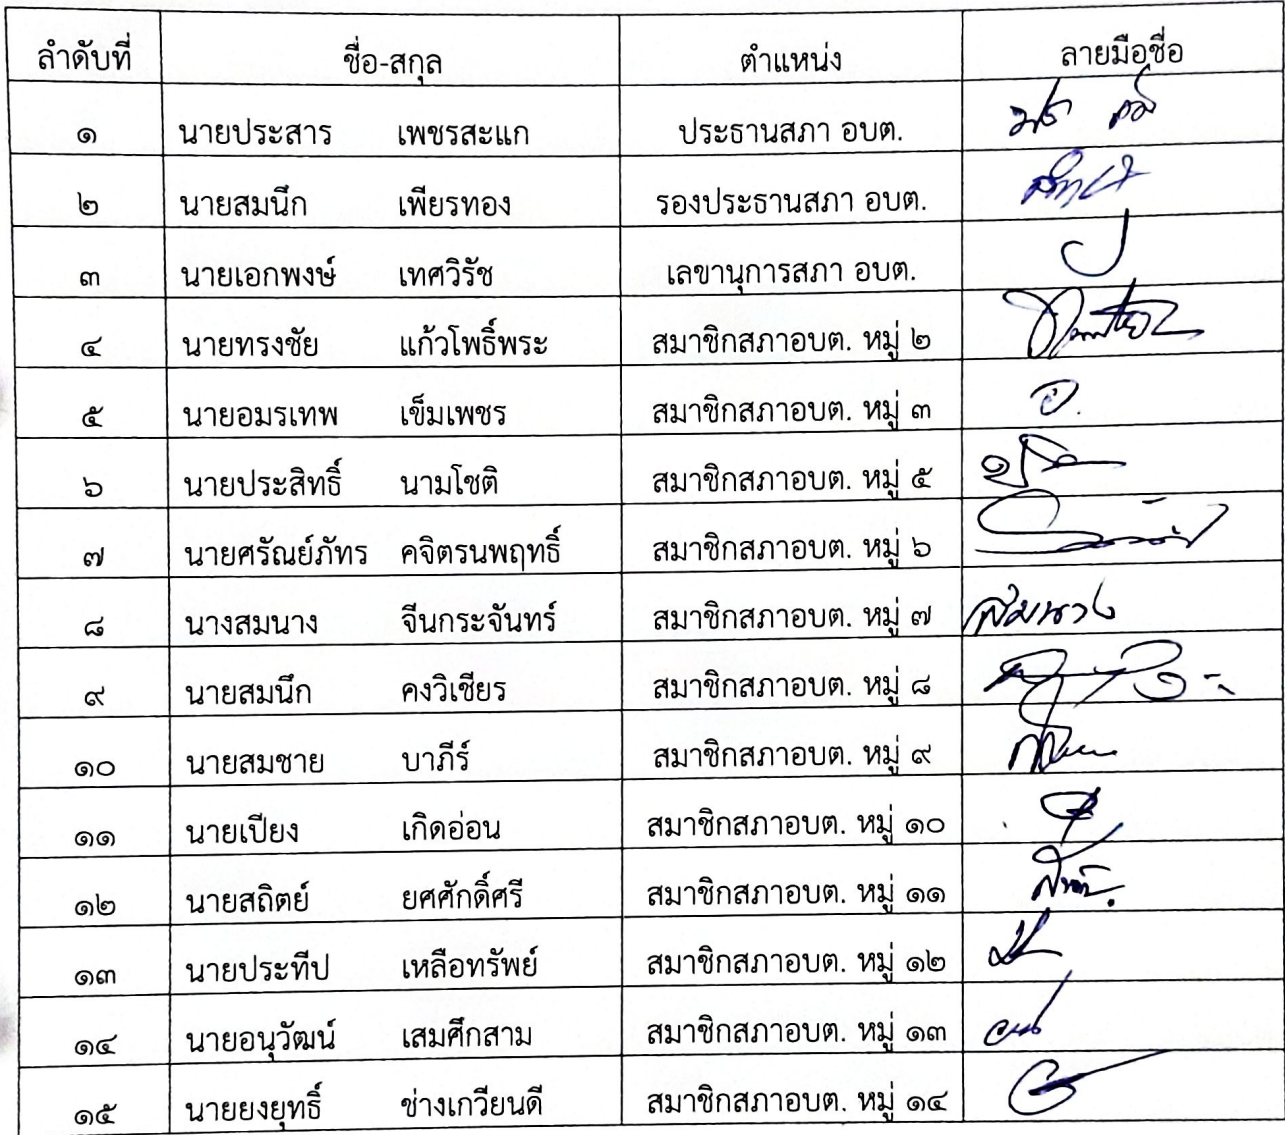 ลำดับที่ ชื่อ-สกุล ตำแหน่ง ลายมือชื่อ
๑ นายประสาร เพชรสะแก ประธานสภา อบต.
๒ นายสมนึก เพียรทอง รองประธานสภา อบต.
๓ นายเอกพงษ์ เทศวิรัช เลขานุการสภา อบต.
๔ นายทรงชัย แก้วโพธิ์พระ สมาชิกสภาอบต. หมู่ ๒
๕ นายอมรเทพ เข็มเพชร สมาชิกสภาอบต. หมู่ ๓
๖ นายประสิทธิ์ นามโชติ สมาชิกสภาอบต. หมู่ ๕
๗ นายศรัณย์ภัทร คจิตรนพฤทธิ์ สมาชิกสภาอบต. หมู่ ๖
๘ นางสมนาง จีนกระจันทร์ สมาชิกสภาอบต. หมู่ ๗ สมนาง
๙ นายสมนึก คงวิเชียร สมาชิกสภาอบต. หมู่ ๘
๑๐ นายสมชาย บาภีร์ สมาชิกสภาอบต. หมู่ ๙
๑๑ นายเปียง เกิดอ่อน สมาชิกสภาอบต. หมู่ ๑๐
๑๒ นายสถิตย์ ยศศักดิ์ศรี สมาชิกสภาอบต. หมู่ ๑๑
๑๓ นายประทีป เหลือทรัพย์ สมาชิกสภาอบต. หมู่ ๑๒
๑๔ นายอนุวัฒน์ เสมศึกสาม สมาชิกสภาอบต. หมู่ ๑๓
๑๕ นายยงยุทธิ์ ช่างเกวียนดี สมาชิกสภาอบต. หมู่ ๑๔